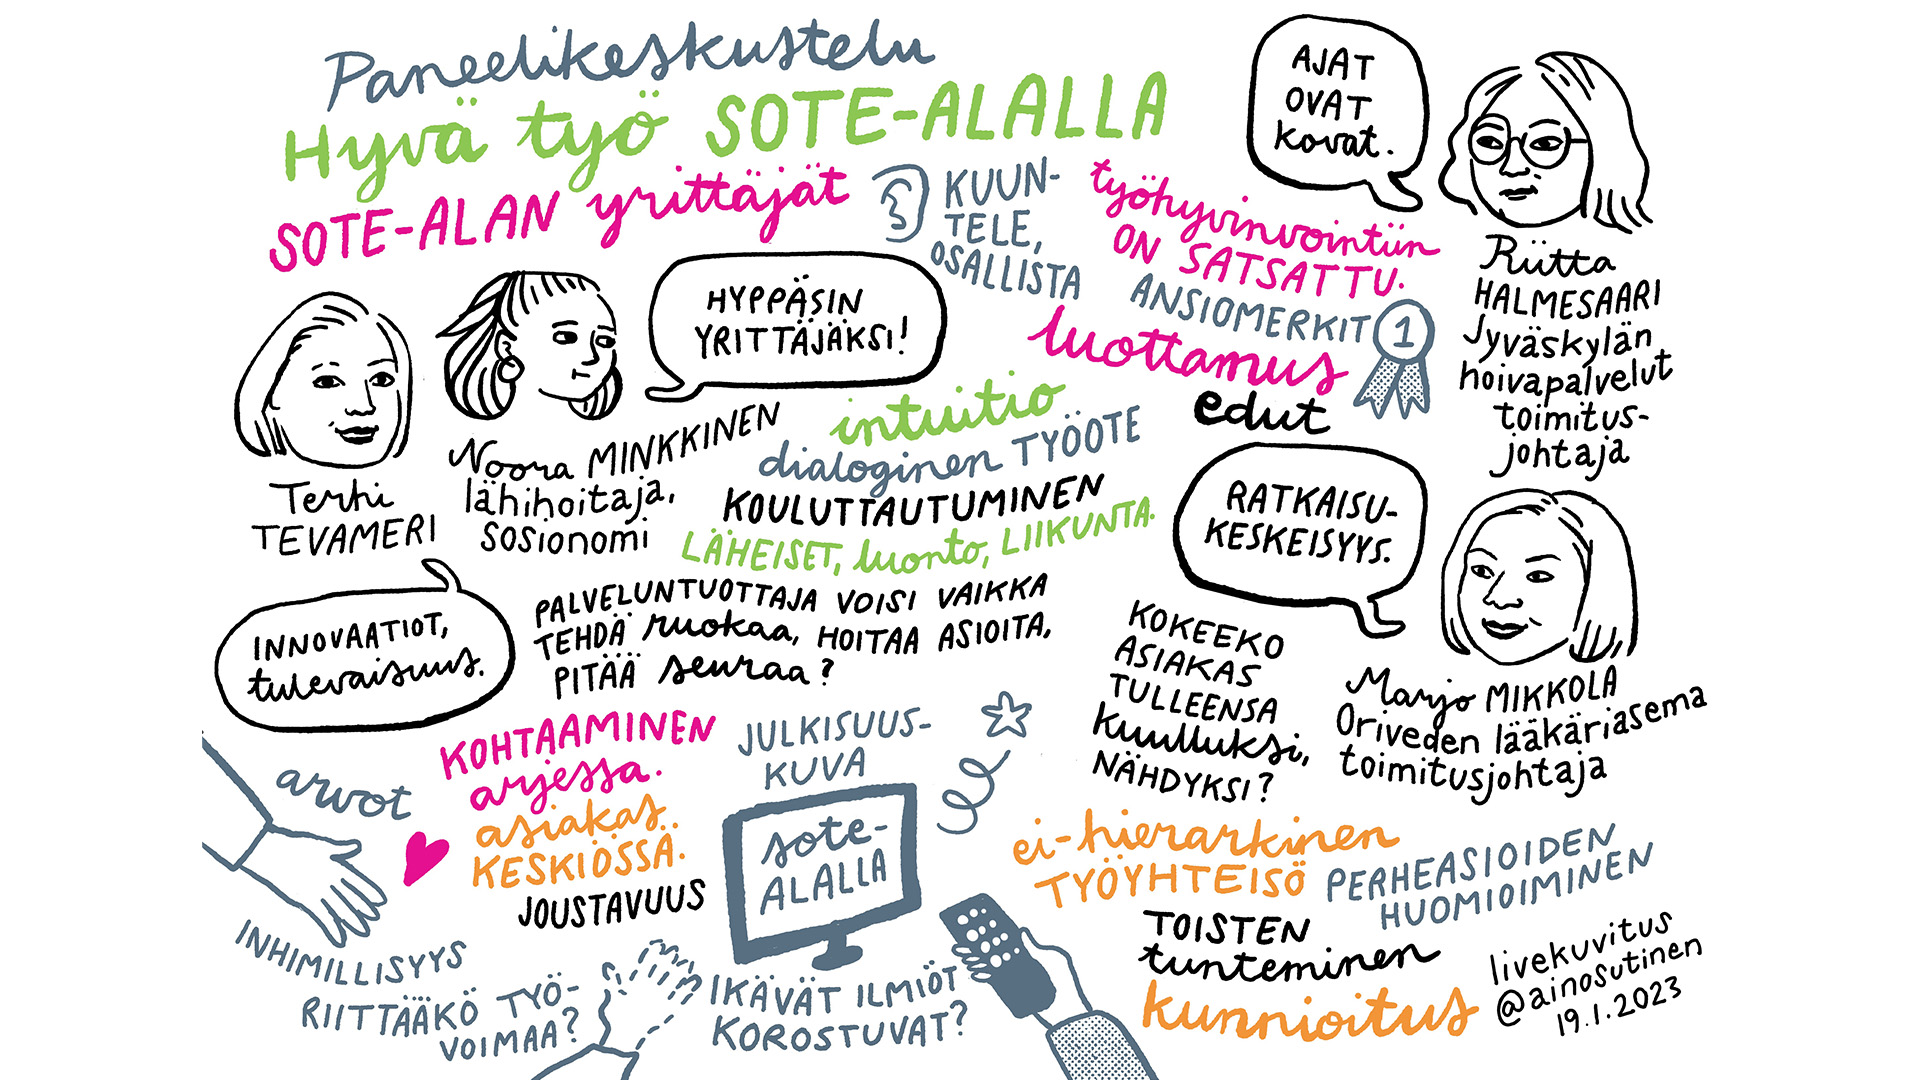 Paneelikeskustelu
Hyvä työ SOTE-ALALLA
SOTE-ALAN yrittäjät
KUUN-
TELE,
OSALLISTA
työhyvinvointiin
ON SATSATTU.
ANSIOMERKIT 1
luottamus
edut
AJAT
OVAT
kovat.
Riitta
HALMESAARI
Jyväskylän
hoivapalvelut
toimitus-
johtaja
HYPPÄSIN
YRITTÄJÄKSI!
Noora MINKKINEN
lähihoitaja,
sosionomi
Terhi
TEVAMERI
INNOVAATIOT,
tulevaisuus.
intuitio
dialoginen TYÖOTE
KOULUTTAUTUMINEN
LÄHEISET, luonto, LIIKUNTA.
PALVELUNTUOTTAJA VOISI VAIKKA
TEHDÄ ruokaa, HOITAA ASIOITA,
PITÄÄ seuraa?
RATKAISU-
KESKEISYYS.
Marjo MIKKOLA
Oriveden lääkäriasema
toimitusjohtaja
KOKEEKO
ASIAKAS
TULLEENSA
kuulluksi,
NÄHDYKSI?
arvot
KOHTAAMINEN
arjessa.
asiakas
KESKIÖSSÄ.
JOUSTAVUUS
JULKISUUS-
KUVA
sote-
ALALLA
INHIMILLISYYS
RIITTÄÄKÖ TYÖ-
VOIMAA?
IKÄVÄT ILMIÖT
KOROSTUVAT?
ei-hierarkinen
TYÖYHTEISÖ
PERHEASIOIDEN
HUOMIOIMINEN
TOISTEN
tunteminen
kunnioitus
livekuvitus
@ainosutinen
19.1.2023